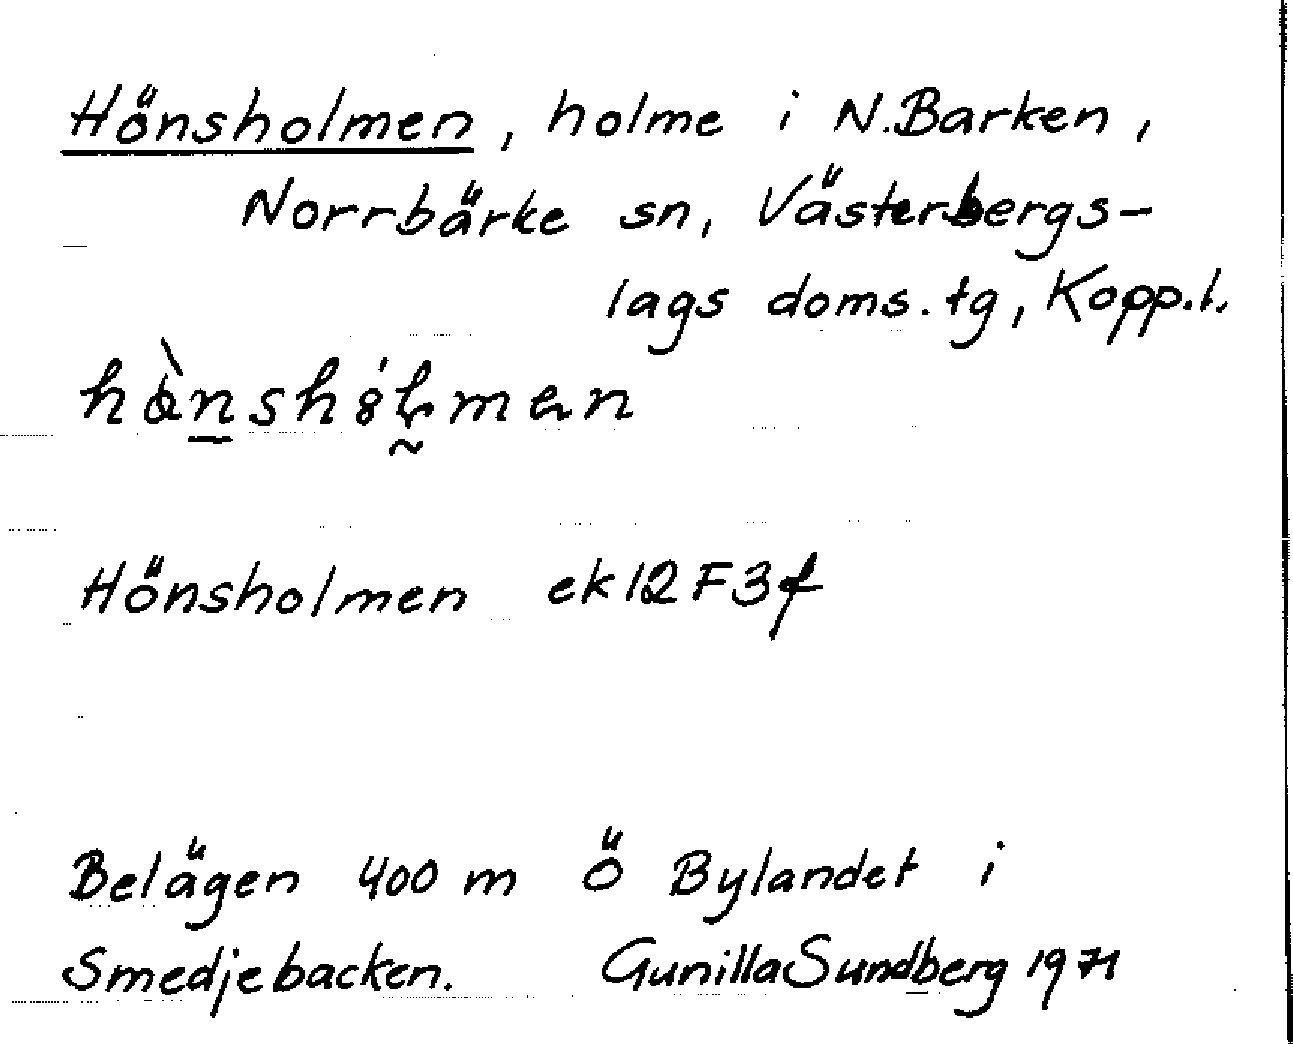 Hönsholmen, holme i N.Barken,
Norrbärke sn, Västerbergs-
lags doms.tg, Kopp.l.
Hönsholmen ek 12F3f
Belägen 400 m Ö Bylandet i
Smedjebacken. Gunilla Sundberg 1971